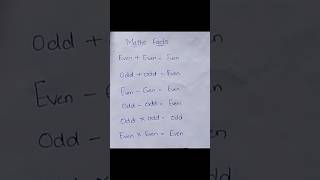 Maths Facts
Even + Even = Even
Odd + Odd = Even
Even - Even = Even
Odd - Odd = Even
Odd × Odd = Odd
Even × Even = Even
Odd +
Even -
Odd -